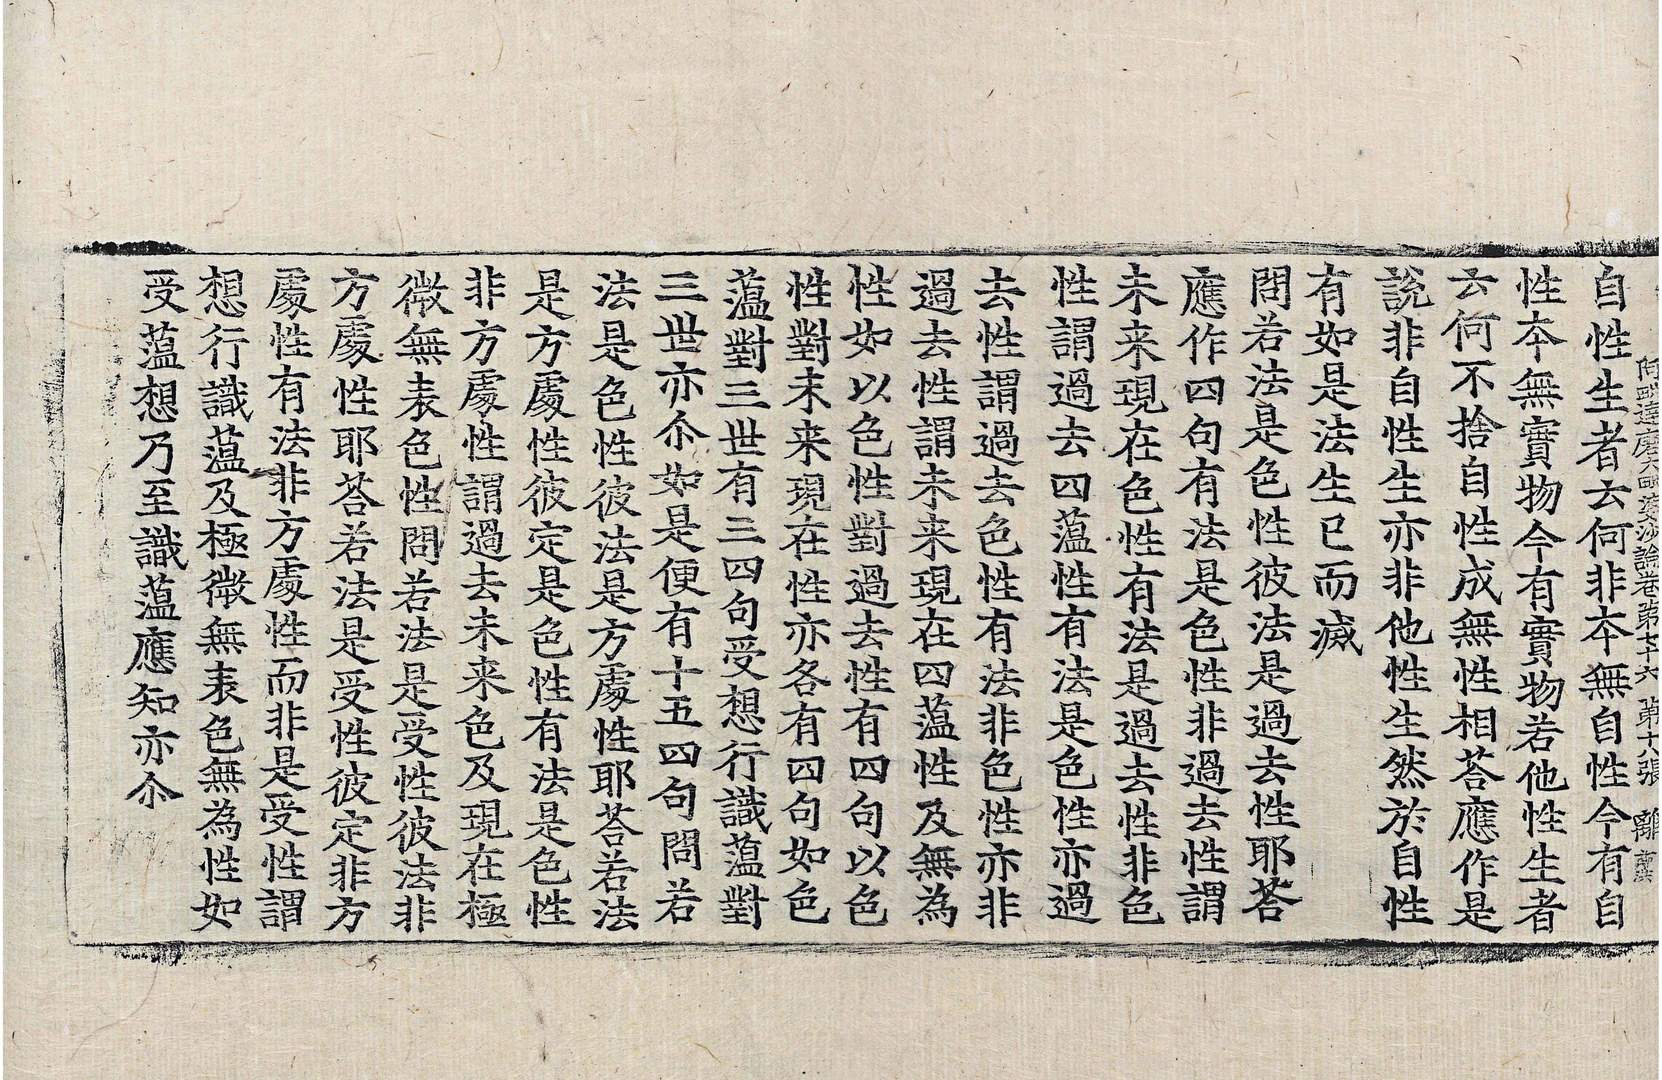 阿毗達磨大毗婆沙論卷第七十六 第十八張 離
自性生者云何非本無自性今有自
性本無實物今有實物若他性生者
云何不捨自性成無性相荅應作是
說非自性生亦非他性生然於自性
有如是法生已而滅
問若法是色性彼法是過去性耶荅
應作四句有法是色性非過去性謂
未来現在色性有法是過去性非色
性謂過去四薀性有法是色性亦過
去性謂過去色性有法非色性亦非
過去性謂未来現在四薀性及無為
性如以色性對過去性有四句以色
性對未来現在性亦各有四句如色
薀對三世有三四句受想行識薀對
三世亦尒如是便有十五四句問若
法是色性彼法是方處性耶荅若法
是方處性彼定是色性有法是色性
非方處性謂過去未来色及現在極
微無表色性問若法是受性彼法非
方處性耶荅若法是受性彼定非方
處性有法非方處性而非是受性謂
想行識薀及極微無表色無為性如
受薀想乃至識薀應知亦尒